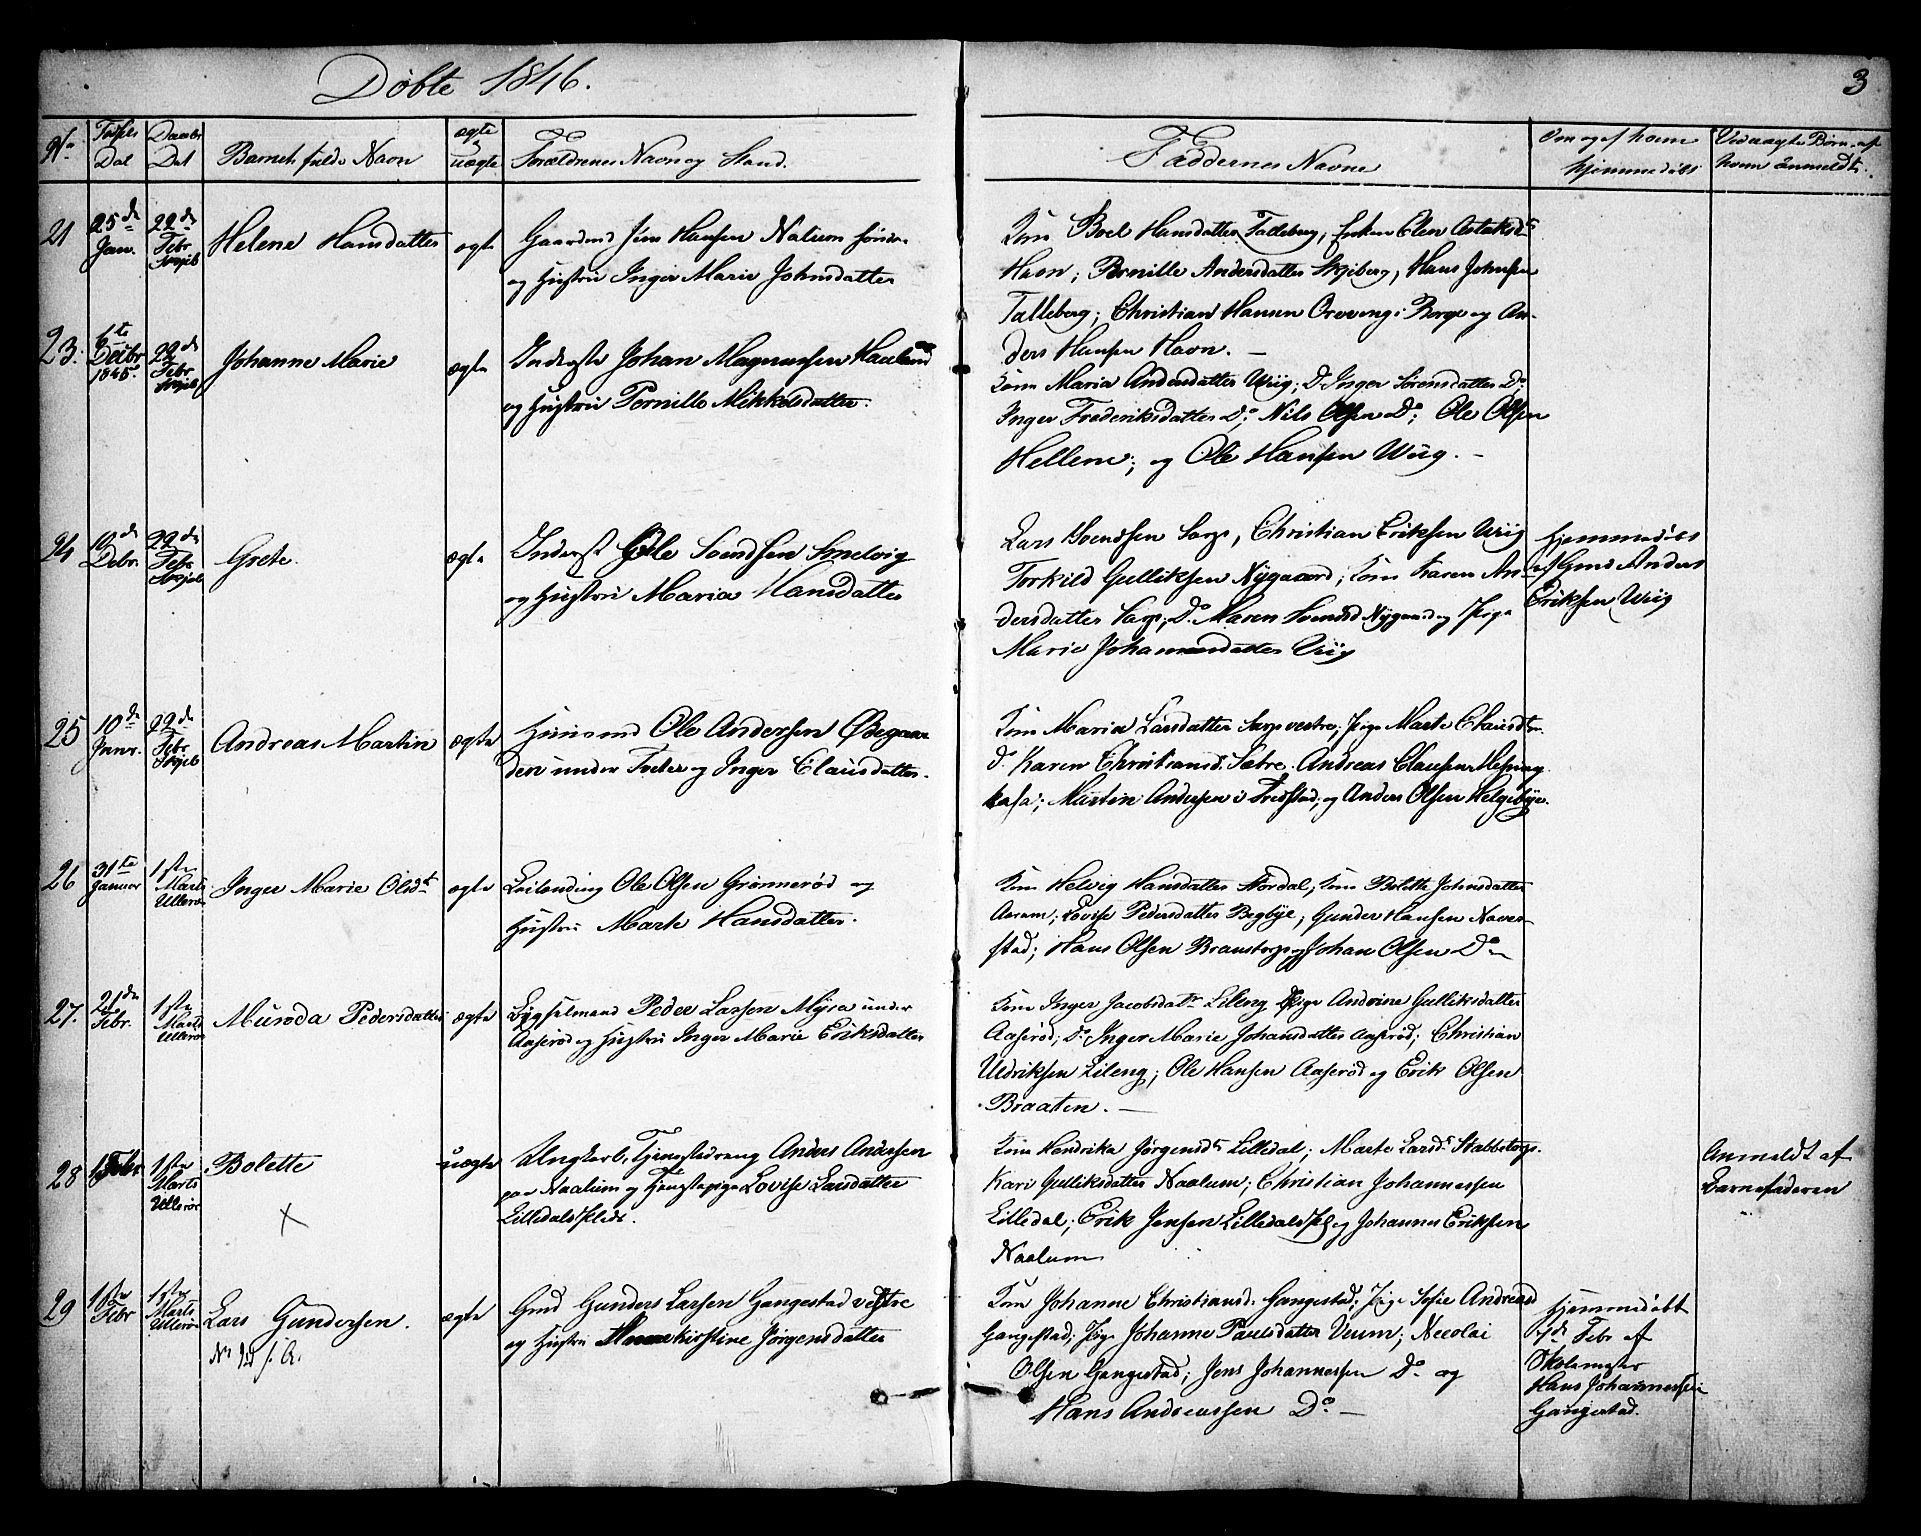 Døbte 1846.
3
No
Fødsels
Dat
Daabs
Dat
Barnets fulde Navn
ægte
uægte
Forældrenes Navn og Stand.
Faddernes Navne
Om og af hvem
hjemmedøbt
Uedaegte Børn af
hvem anmeldt.
21
25de
Jan.
22de
Febr
Skjeb
Helene Hansdatter
ægte
Gaardmd Jens Hansen Nalum søndre
og Hustru Inger Marie Johnsdatter
Kone Boel Hansdatter Talleberg, Enken Elen
Havn; Pernille Andersdatter Skjeberg, Hans Johnsen
Talleberg; Christian Hansen i Borge og An-
ders Hansen Havn. —
23.
6te
Decbr
1845.
22de
Febr
Skjeb
Johanne Marie
ægte
Inderste Johan Magnussen Haaland
og Hustru Pernille Mikkelsdatter.
Kone Maria Andersdatter Wiig; Do Inger Sørensdatter Do
Inger Frederiksdatter Do; Nils Olsen Do; Ole Olsen
Hellern; og Ole Hansen Wiig. —
24
10de
Debr.
22de
Febr
Skjeb
Grete.
ægte
Inderst Ole Svendsen Smelvig
og Hustru Maria Hansdatter
Lars Svendsen Sarp, Christian Eriksen Wiig
Torkild Gulliksen Nygaard, Kone Karen An-
dersdatter Sarp; Do Maren Svendsd Nygaard og Pige
Marie Johannesdatter Viig
Hjemmedøbt
af Gmd Anders
Eriksen Wiig
25
10de
Janr.
22de
Febr
Skjeb
Andreas Martin
ægte
Huusmd Ole Andersen Ødegaar
den under Treter og Inger Clausdatter.
Kone Maria Larsdatter Sarp vestre; Pige Marte Clausdtr.
Do Karen Christiansd. Sætre. Andreas Clausen
Martin Andersen i Fredstad; og Anders Olsen Helgebye.
26
31te
Januar
1ste
Marts
Ullerøe
Inger Marie Olsdt
ægte
Leilending Ole Olsen Grønnerød og
Hustru Marte Hansdatter.
Kone Helvig Hansdatter Nordal; Kone Bolette Johnsdatter
Aarum; Lovise Pedersdatter Begbye, Gunder Hansen Naver-
stad; Hans Olsen Branstorp og Johan Olsen Do
27.
21de
Febr.
1ste
Marts
Ullerøe
Munda Pedersdatter
ægte
Bygselmand Peder Larsen Myra under
Aaserød og Hustru Inger Marie Eriksdatter
Kone Inger Jacobsdatr Lileng Pige Andrine Gulliksdatter
Aaserød; Do Inger Marie Johansdatter Aaserød; Christian
Uldriksen Lileng; Ole Hansen Aaserød og Erik Olsen
Braaten. —
28
Febr
1ste
Marts
Ullerøe
Bolette
X
uægte
Ungkarl, Tjenestedreng Anders Andersen
paa Naalum og Tjenestepige Lovise Larsdatter
Lilledalsplads.
Kone Hendrika Jørgensdt Lilledal; Marte Larsd. Stabbetorp.
Kari Gulliksdatter Naalum; Christian Johannessen
Lilledal; Erik Jensen Lilledalspl og Johannes Eriksen
Naalum
Anmeldt af
Barnefaderen
29
1ste
Febr
1ste
Marts
Ullerøe
Lars Gundersen.
ægte
Gmd Gunders Larsen Gangestad vestre
og Hustru Annekirstine Jørgensdatter
Kone Johanne Christiansd. Gangestad; Pige Sofie Andreasd
Gangestad; Pige Johanne Paulsdatter Veum; Niccolai
Olsen Gangestad; Jens Johannessen Do og
Hans Andreassen Do —
Hjemmedøbt
Febr af
Skolemester
Hans Johannessen
Gangestad.